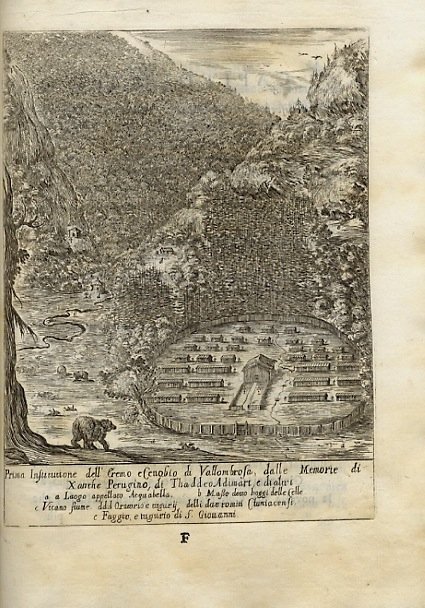 Prima Institutione dell' Eremo e Cenobio di Vallombrosa, dalle Memorie di
Xanthe Perugino, di Thaddeo Adimari, e di altri
a Luogo appellato Acquabella. b Masso detto hoggi delle Celle
c Vicano fiume ddd Oratorio e tugurij delli due romiti Cluniacensi.
e Faggio, e tugurio di S. Giovanni
F